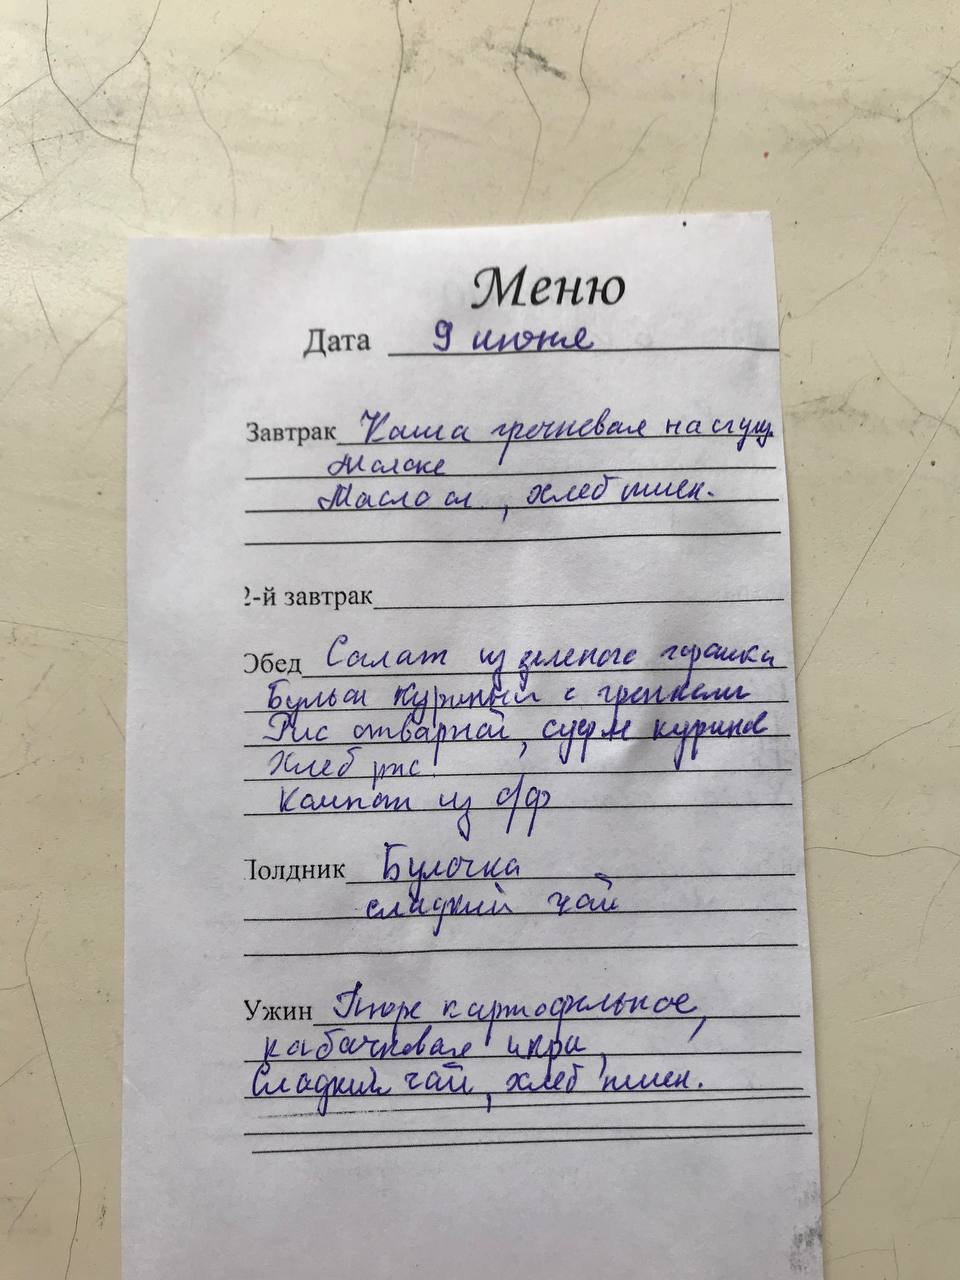 Меню
Дата 9 июня
Завтрак Каша гречневая на сгущ.
Молоке
Масло сл, хлеб пшен.
2-й завтрак
Обед Салат из зеленого горошка
Бульон куриный с гренками
Рис отварной, суфле куриное
Хлеб рж.
Компот из с/ф
Полдник Булочка
сладкий чай
Ужин Пюре картофельное,
кабачковая икра,
Сладкий чай, хлеб пшен.